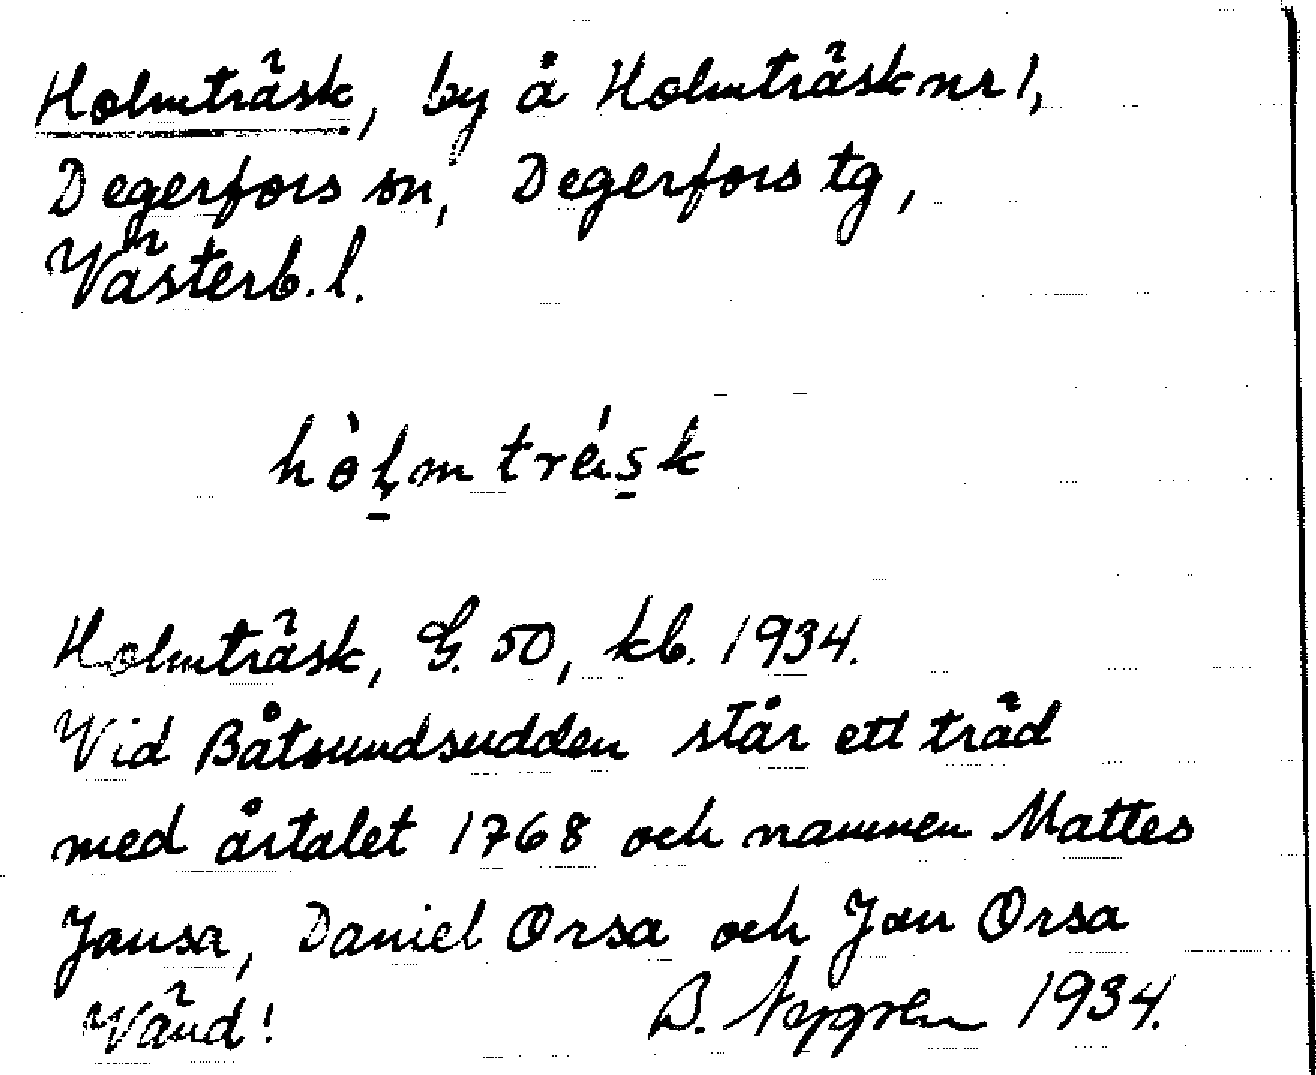 Holmträsk, by å Holmträsk nr 1,
Degerfors sn, Degerfors tg,
Västerb. l.
hòl̥mträ́sk
Holmträsk, G. 50, kb. 1934.
Vid Båtsundsudden står ett träd
med årtalet 1768 och namnen Mattes
Jansa, Daniel Orsa och Jan Orsa
Vänd! B. Nygren 1934.